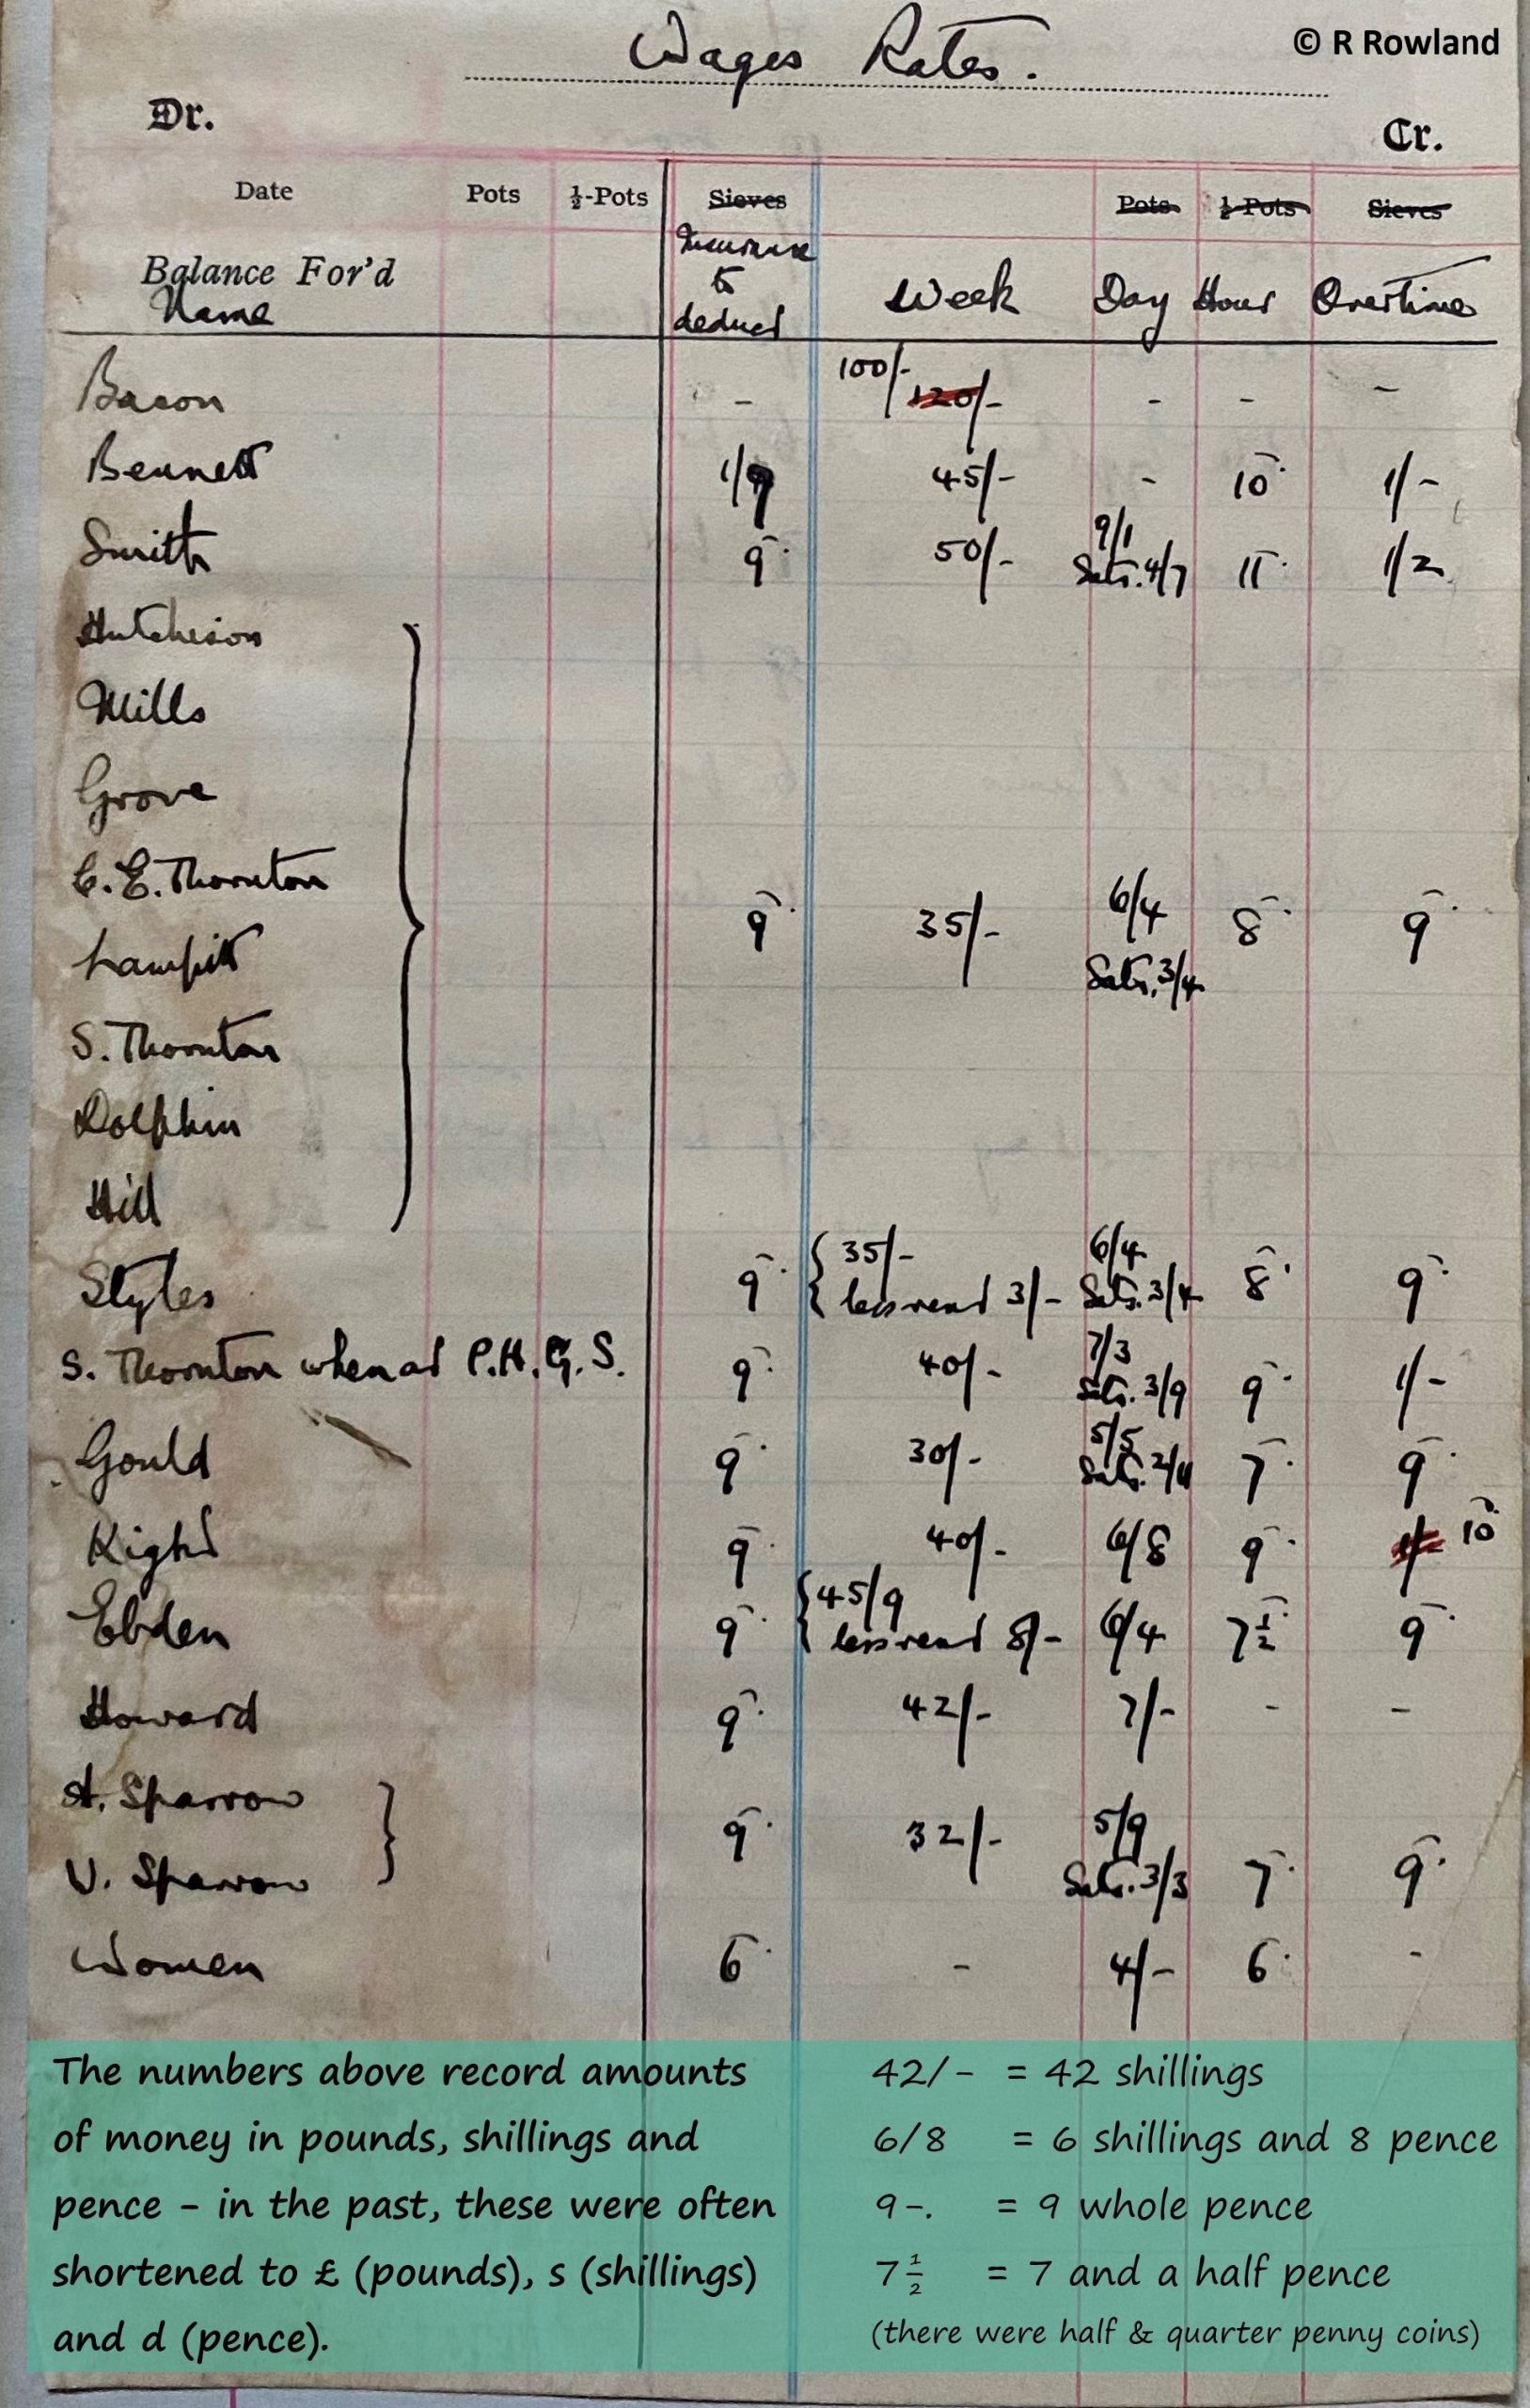 Wages Rates.
© R Rowland
Dr.
Cr.
Date Pots ½-Pots Sieves Pots ½-Pots Sieves
Balance For'd
Name Insurance to deduct Week Day Hour Overtime
Bacon - 100/- 120/- - - -
Bennett 1/9 45/- - 10 1/-
Smith 9 50/- 9/1 Sats. 4/7 11 1/2
Hutchison
Mills
Grove
C. E. Thornton
9 35/- 6/4 Sats. 3/4 8 9
Lampitt
S. Thornton
Dolphin
Hill
Styles 9 { 35/- less rent 3/- 6/4 Sats. 3/4 8 9
S. Thornton when at P.H.G.S. 9 40/- 7/3 Sats. 3/9 9 1/-
Gould 9 30/- 5/5 Sats. 2/11 7 9
Kight 9 40/- 6/8 9 1/- 10
Ebden 9 { 45/9 less rent 8/- 6/4 7½ 9
Howard 9 42/- 7/- - -
A. Sparrow
9 32/- 5/9 Sats. 3/3 7 9
V. Sparrow
Women 6 - 4/- 6 -
The numbers above record amounts
of money in pounds, shillings and
pence - in the past, these were often
shortened to £ (pounds), s (shillings)
and d (pence).
42/- = 42 shillings
6/8 = 6 shillings and 8 pence
9-. = 9 whole pence
7½ = 7 and a half pence
(there were half & quarter penny coins)